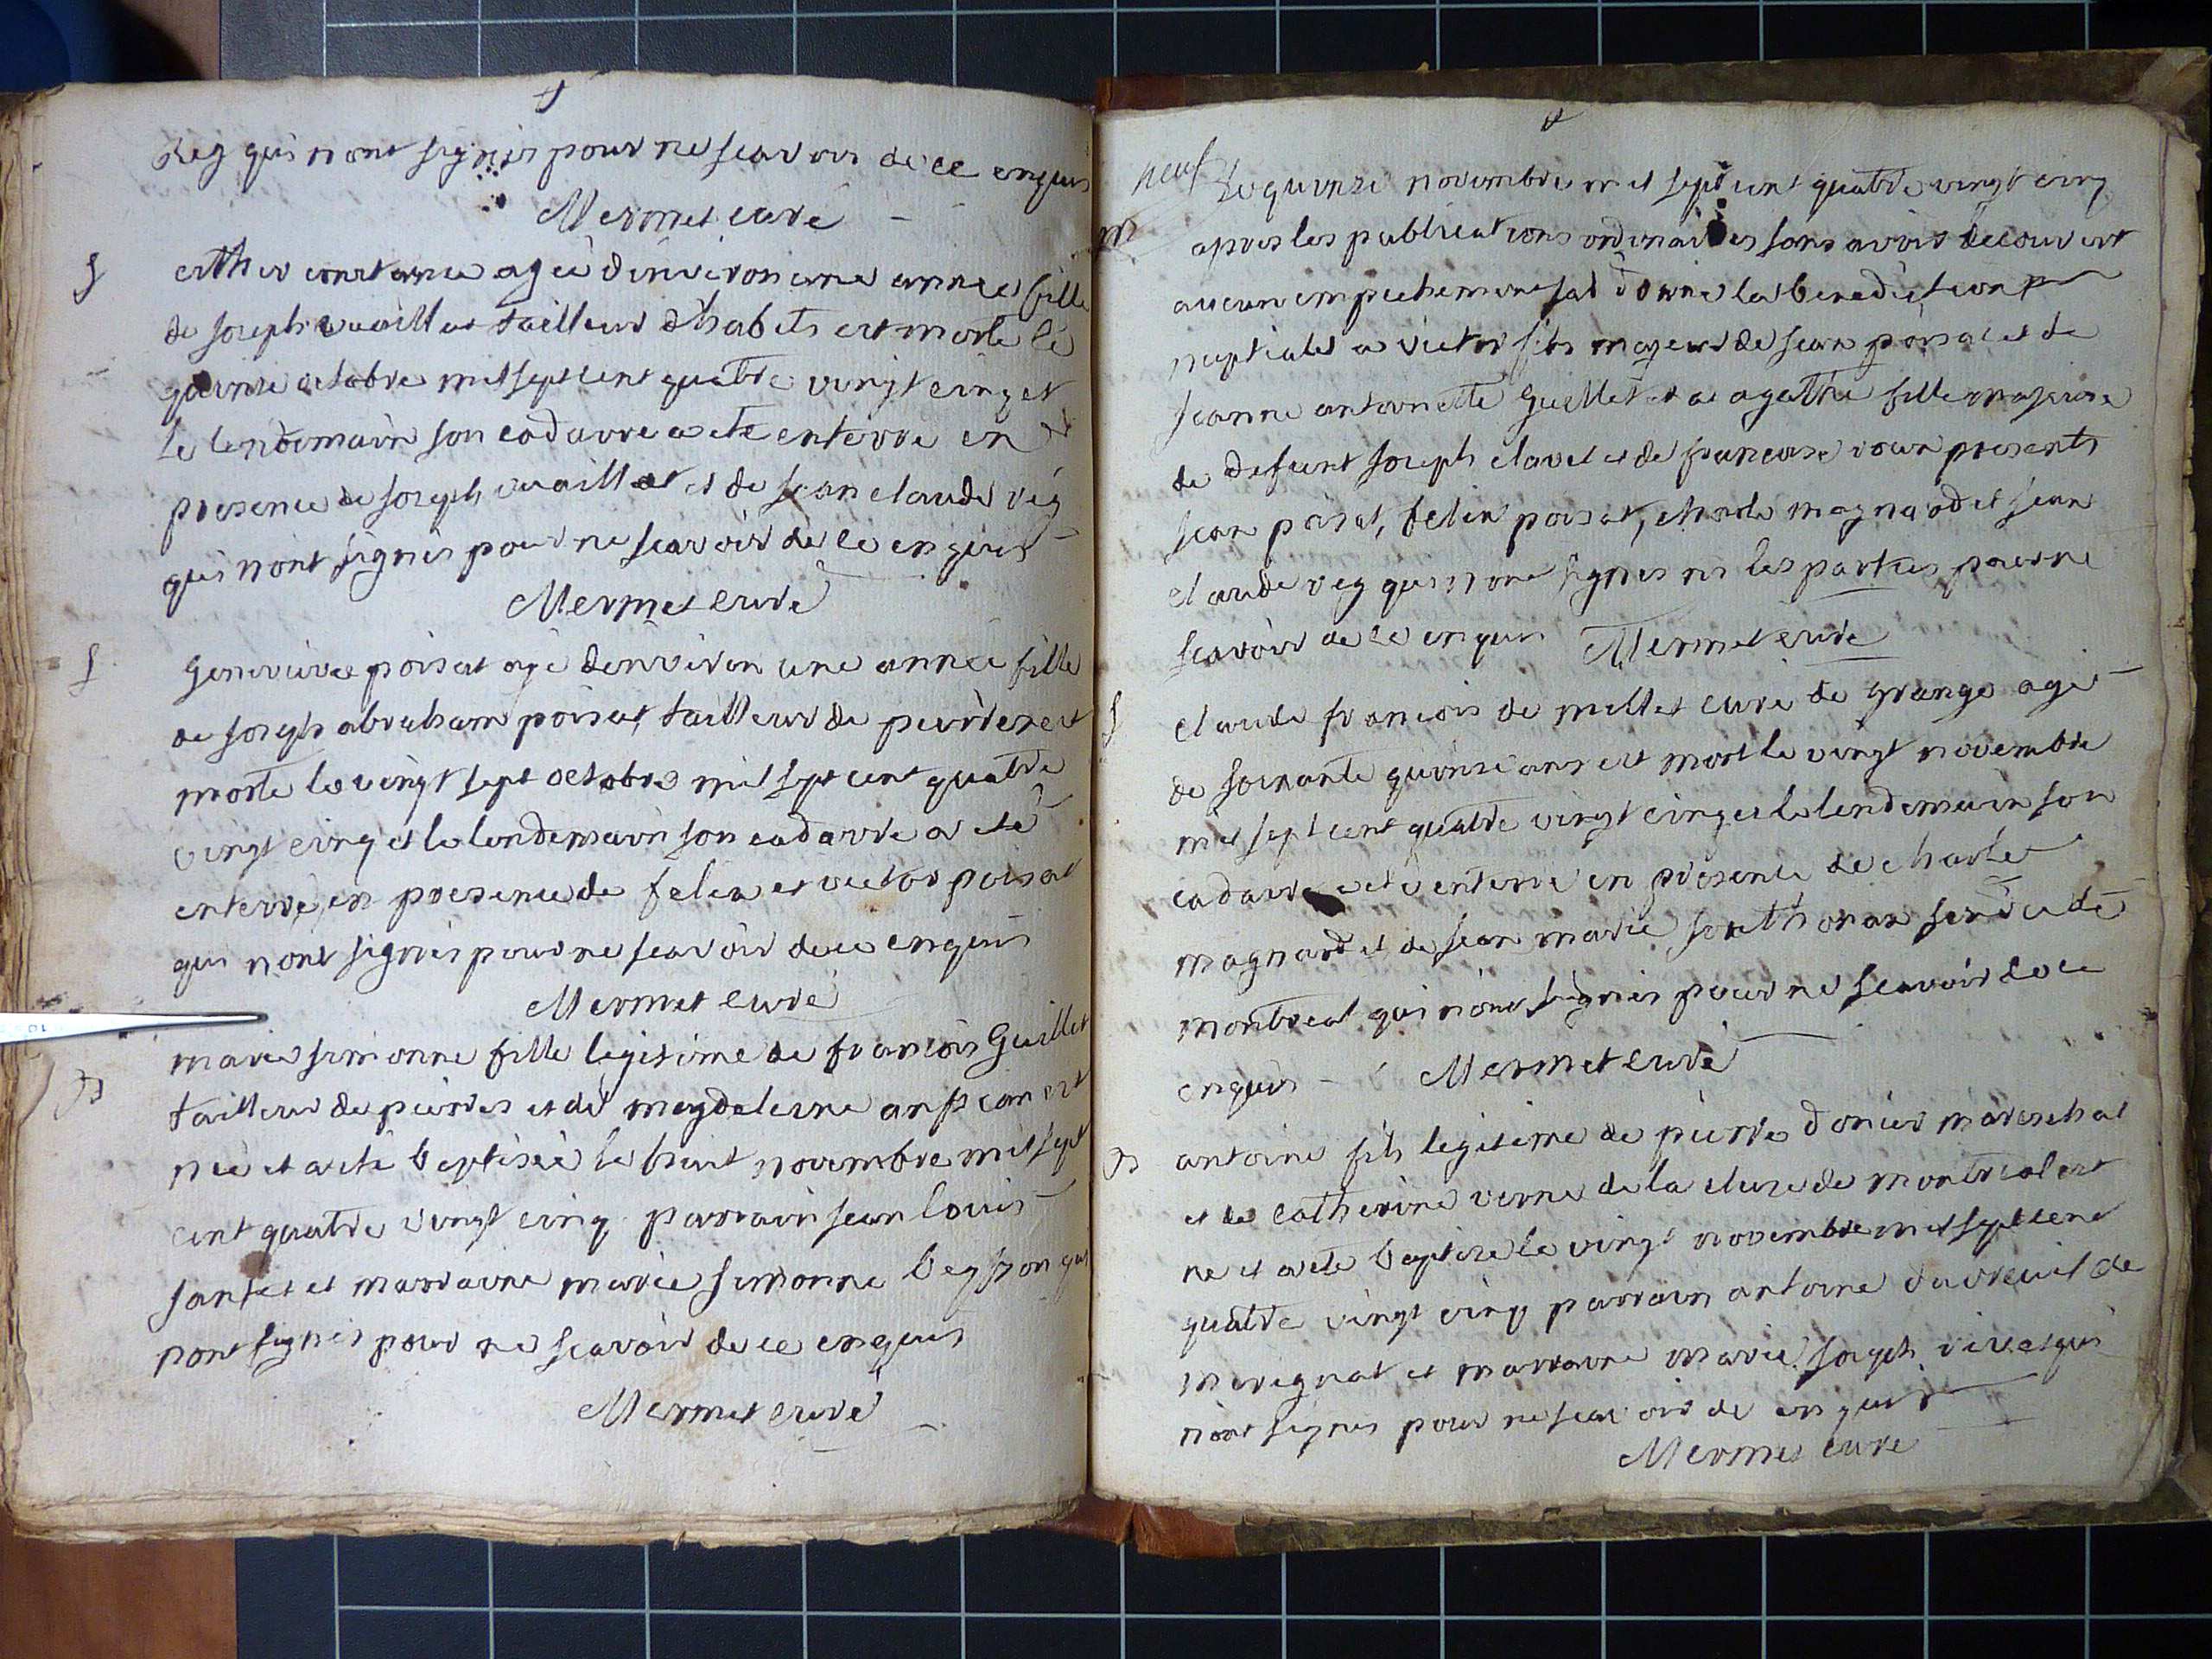 Rey qui n ont signés pour ne scavoir de ce enquis
Mermet curé
S
esther constance agée d'environ une année fille
de joseph vuaillat tailleur d'habits est morte le
quinze octobre mil sept cent quatre vingt cinq et
le lendemain son cadavre a ete enterré en
presence de joseph vuaillat et de jean claude rey
qui n'ont signés pour ne scavoir de ce enquis
Mermet curé
S
genevieve poisat agé d'environ une année fille
de joseph abraham poisat tailleur de pierres est
morte le vingt sept octobre mil sept cent quatre
vingt cinq et le lendemain son cadavre a eté
enterré en presence de felix et victor poisat
qui n'ont signés pour ne scavoir de ce enquis
Mermet curé
B
marie simonne fille legitime de francois Guillet
tailleur de pierres et de magdeleine est
née et a eté baptisée le huit novembre mil sept
cent quatre vingt cinq parrain jean louis
et marraine marie simonne qui
n'ont signés pour ne scavoir de ce enquis
Mermet curé
neuf
M
Le quinze novembre mil sept cent quatre vingt cinq
apres les publications ordinaires sans avoir decouvert
aucun empechement jai donné la benediction
nuptiale a victor fils majeur de jean poisat et de
jeanne antoinette Guillet et a agathe fille majeure
de defunt joseph clavel et de francoise presents
jean poisat, felix poisat, charle magnard et jean
claude rey qui n'ont signés ni les parties pour ne
scavoir de ce enquis Mermet curé
S
claude francois de millet curé de grange agé
de soixante quinze ans est mort le vingt novembre
mil sept cent quatre vingt cinq et le lendemain son
cadavre a eté enterré en presence de charle
magnard et de jean marie sonthonax de
montreal qui n'ont signés pour ne scavoir de ce
enquis Mermet curé
B
antoine fils legitime de pierre donier mareschal
et de catherine verne de la cluse de montreal est
ne et a ete baptisé le vingt novembre mil sept cent
quatre vingt cinq parrain antoine de
merignat et marraine marie joseph qui
n'ont signés pour ne scavoir de enquis
Mermet curé